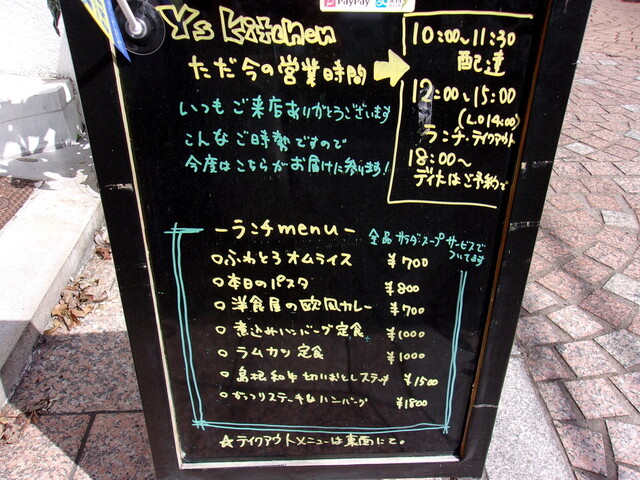 PayPay
Ys Kitchen
ただ今の営業時間
10:00~11:30
配達
12:00~15:00
(L.O14:00)
ランチ・テイクアウト
18:00~
ディナーはご予約で
いつもご来店ありがとうございます
こんなご時勢ですので
今度はこちらがお届けに参ります!
ーランチmenuー
全品サラダ・スープサービスで
ついてます
ふわとろオムライス ¥700
本日のパスタ ¥800
洋食屋の欧風カレー ¥700
煮込みハンバーグ定食 ¥1000
ラムカツ定食 ¥1000
島根和牛切りおとしステーキ ¥1500
がっつりステーキ&ハンバーグ ¥1800
☆テイクアウトメニューは裏面にて。